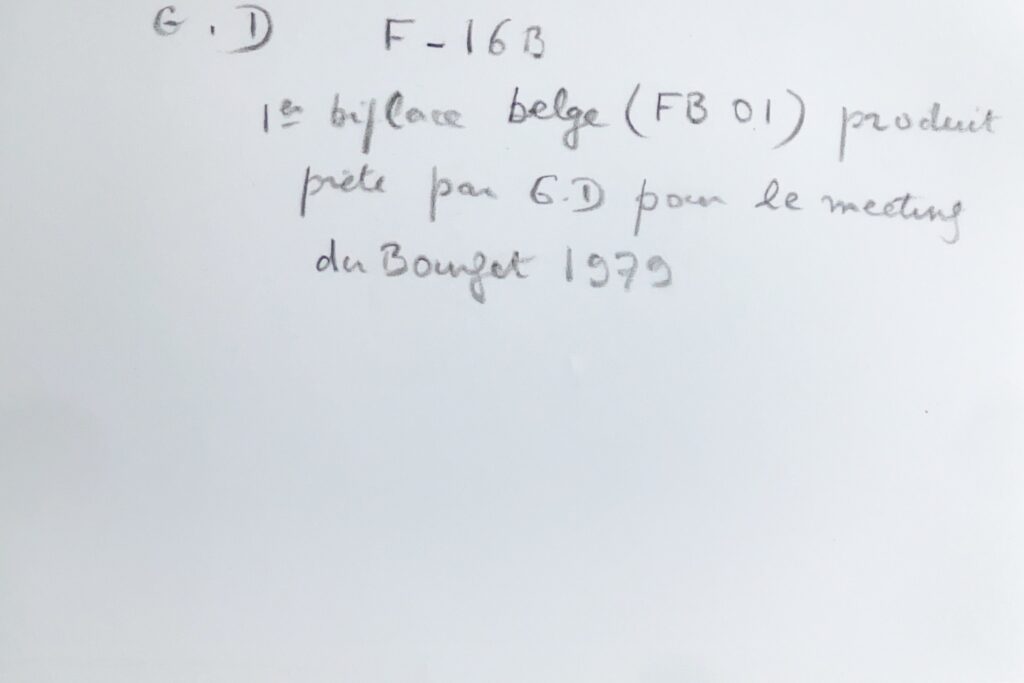 G.D F-16B
1er biplace belge (FB 01) produit
prêté par G.D pour le meeting
du Bourget 1979